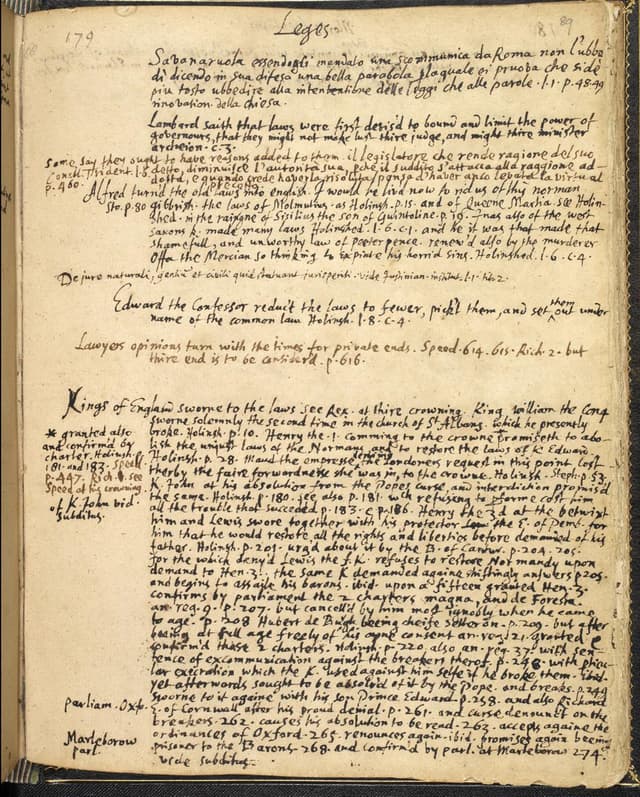 179
Leges
89
Savanaruola essendogli mandato una scommunica da Roma non l'ubbe
di dicendo in sua difesa una bella parabola p laquale si pruova che si de
piu tosto ubbedire alla intentione delle leggi che alle parole. l. 1. p. 48. 49
rinovation della chiesa.
Lombard saith that laws were first devis'd to bound and limit the power of
governours, that they might not make lust thire judge, and might thire minister
archeion. c. 3.
Some say they ought to have reasons added to them il legislatore che rende ragione del suo
Concil. Trident. l. 5 detto, diminuisce l'autorita sua, pche il suddito s'attacca alla ragione ad-
p. 460. dotta, e quando crede haverla risoluta, pensa d'haver anco levata la virtu al
precetto.
Alfred turn'd the old laws into english. I would he liv'd now to rid us of this norman
Sto. p. 80 gibbrish. the laws of Molmutius. as Holinsh. p. 15. and of Queene Martia. see Holin-
shed. in the raigne of Sisilius the son of Guintoline. p. 19. Inas also of the west
saxons k. made many laws Holinshed. l. 6. c. 1. and he it was that made that
shamefull, and unworthy law of peeterpence. renew'd also by the murderer
Offa the Mercian so thinking to expiate his horrid sins. Holinshed. l. 6. c. 4.
De jure naturali, gentium et civili quid statuant jurisperiti. vide Justinian. institut. l. 1. tit. 2.
Edward the Confessor reduc't the laws to fewer, pick't them, and set them out under
name of the common law Holinsh. l. 8. c. 4.
Lawyers opinions turn with the times for private ends. Speed. 614. 615. Rich. 2. but
thire end is to be consider'd. p. 616.
Kings of England sworne to the laws see Rex. at thire crowning. King William the Conq
sworne solemnly the second time in the church of St Albans. which he presently
broke. Holinsh. p. 10. Henry the 1. comming to the crowne promiseth to abo-
lish the unjust laws of the Normans and to restore the laws of k. Edward
Holinsh. p. Maud the empresse denying the Londoners request in this point lost
therby the faire forwardnesse she was in to the crowne. Holinsh. Steph. p. 53.
* granted also
and confirm'd by
charter. Holinsh. p.
181. and 183. Speed
p. 447. Rich. 1. see
Speed at his crowning.
of K. John vid.
subditus.
K. John at his absolution from the Popes curse, and interdiction promis'd
the same. Holinsh. p. 180. see also p. 181. wch refusing to pforme cost him
all the trouble that succeeded p. 183. &c. p. 186. Henry the 3d at the betwixt
him and Lewis swore together with his protector the E. of Pemb. for
him that he would restore all the rights and liberties before demanded of his
father. Holinsh. p. 201. urg'd about it by the B. of Cantur. p. 204. 205.
for the which deny'd Lewis the f. K. refuses to restore Normandy upon
demand to Hen. 3. the same K demanded againe shiftingly answers p 205.
and begins to assaile his barons. ibid. upon a fifteen granted Hen. 3.
confirms by parliament the 2 charters magna, and de Foresta.
an. reg. 9. p. 207. but cancell'd by him most ignobly when he came
to age. p. 208 Hubert de Burgh beeing cheife setter on. p. 209. but after
beeing at full age freely of his owne consent an. reg. 21. granted &
confirm'd those 2 charters. Holinsh. p. 220. also an. reg. 37. with sen-
tence of excommunication against the breakers therof. p. 248. with pticu-
lar execration which the K. us'd against him selfe if he broke them. ibid.
yet afterwords sought to be absolv'd of it by the Pope. and breaks. p. 249
sworne to it againe with his son Prince Edward. p. 258. and also Richard
Parliam. Oxf. E. of Cornwall after his proud denial. p. 261. and curse denounc't on the
breakers. 262. causes his absolution to be read. 263. accepts againe the
ordinances of Oxford. 265. renounces again. ibid. promises again beeing
Marleborow
parl.
prisoner to the Barons. 268. and confirm'd by parl. at Marleborow 274.
vide subditus.